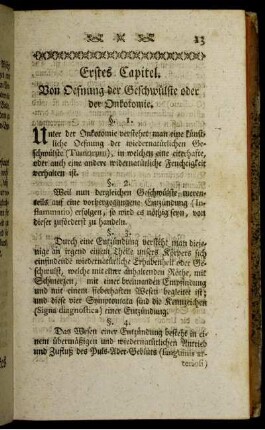 13
Erstes Capitel.
Von Oefnung der Geschwülste oder
der Onkotomie.
§. 1.
Unter der Onkotomie verstehet man eine künst-
liche Oefnung der wiedernatürlichen Ge-
schwülste (Tumorum), in welchen eine eiterhafte,
oder auch eine andere widernatürliche Feuchtigkeit
verhalten ist.
§. 2.
Weil nun dergleichen Geschwülste meren-
teils auf eine vorhergegangene Entzündung (In-
flammatio) erfolgen, so wird es nötig seyn, von
dieser zuförderst zu handeln.
§. 3.
Durch eine Entzündung versteht man dieje-
nige an irgend einem Theile unsers Körpers sich
einfindende wiedernatürliche Erhabenheit oder Ge-
schwulst, welche mit einer anhaltenden Röthe, mit
Schmerzen, mit einer brennenden Empfindung
und mit einem fieberhaften Wesen begleitet ist;
und diese vier Symptomata sind die Kennzeichen
(Signa diagnostica) einer Entzündung.
§. 4.
Das Wesen einer Entzündung besteht in ei-
nem übermäßigen und wiedernatürlichen Antrieb
und Zufluß des Puls-Ader-Gebluts (sanguinis ar-
teriosi)